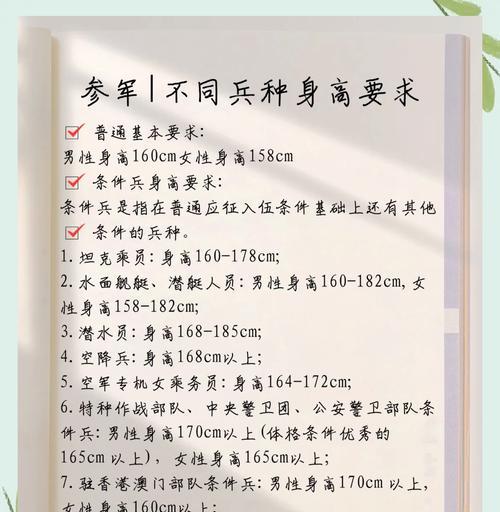 参军|不同兵种身高要求
普通基本要求:
男性身高160cm女性身高158cm
条件兵身高要求:
条件兵是指在普通应征入伍条件基础上还有其他
条件的兵种。
1. 坦克乘员:身高160-178cm;
2. 水面舰艇、潜艇人员:男性身高160-182cm, 女
性身高158-182cm;
3. 潜水员:身高168-185cm;
4. 空降兵:身高168cm以上;
5. 空军专机女乘务员:身高164-172cm;
6. 特种作战部队、中央警卫团、公安警卫部队条
件兵:男性身高170cm以上(体格条件优秀的
165cm 以上), 女性身高165cm以上;
7. 驻香港澳门部队条件兵:男性身高170cm 以上,
女性身高160cm以上;